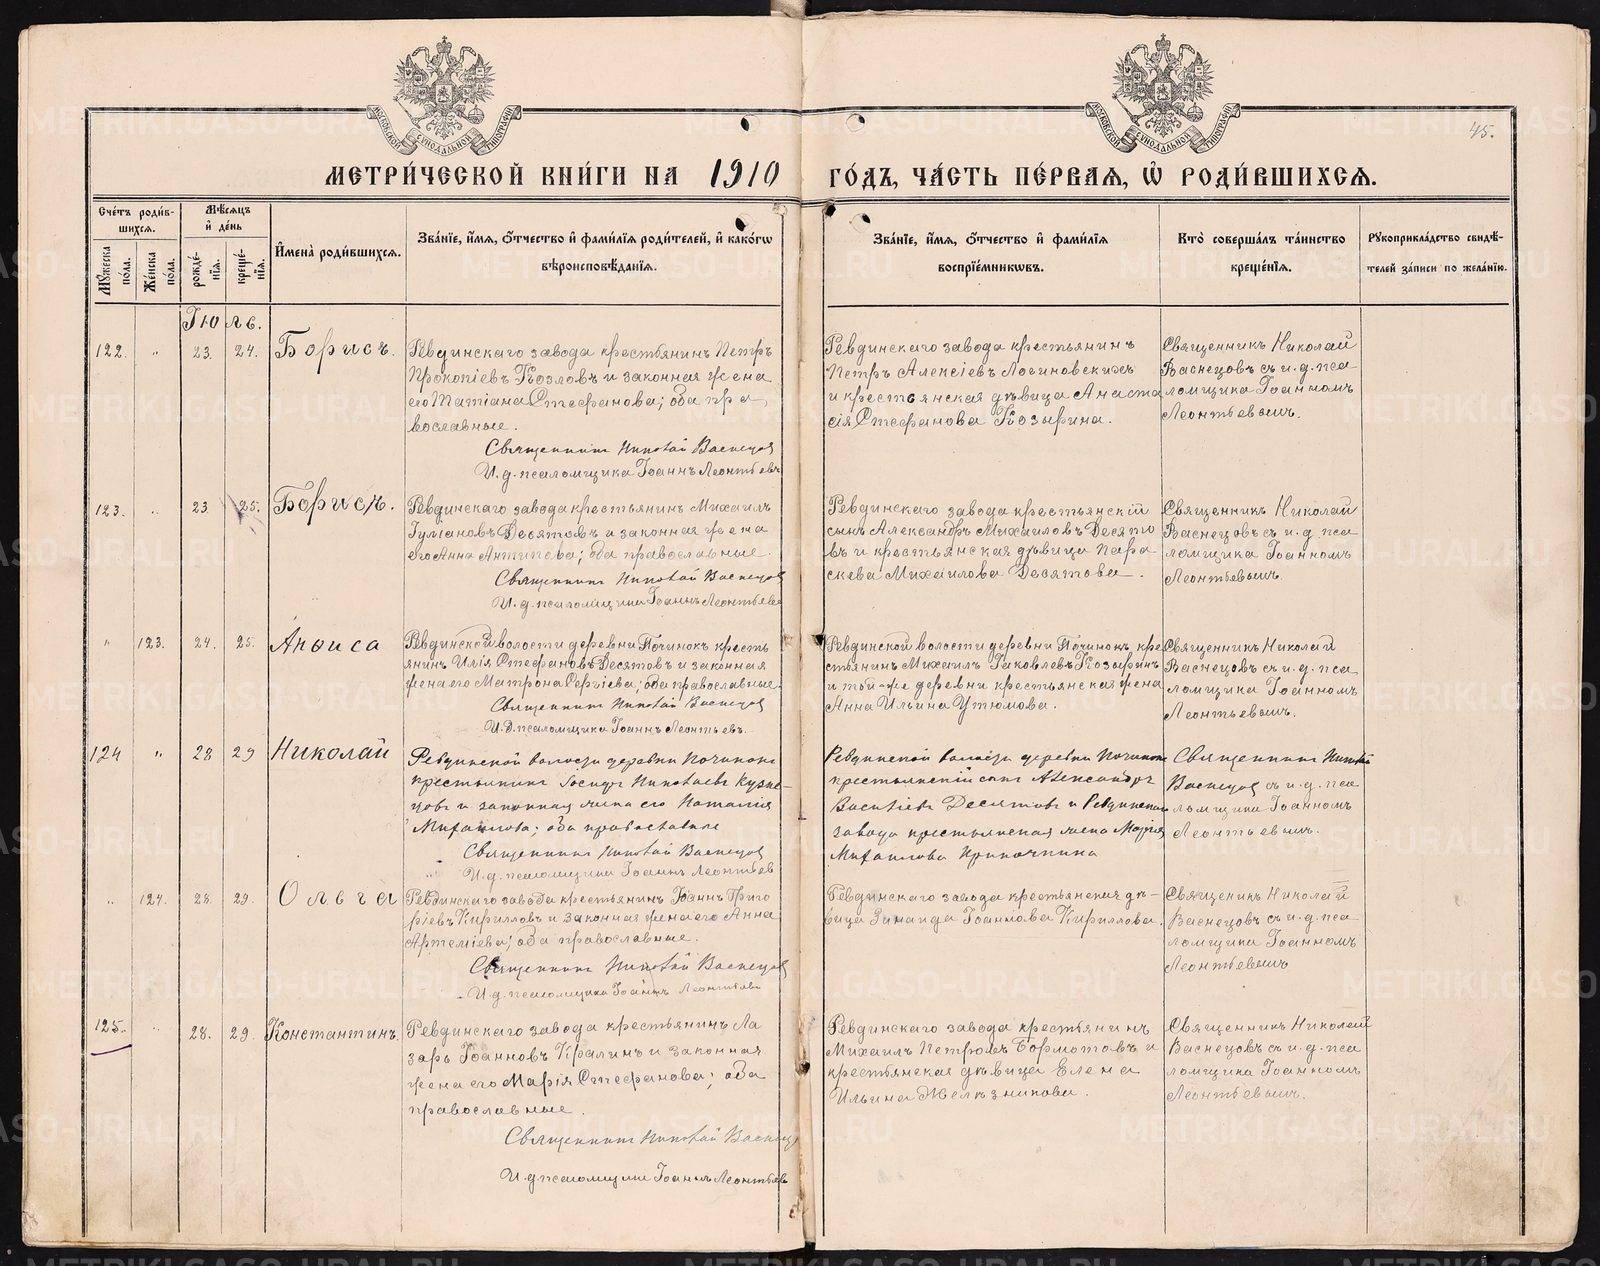 МОСКОВСКОЙ СѴНОДАЛЬНОЙ ТИПОГРАФІИ
МОСКОВСКОЙ СѴНОДАЛЬНОЙ ТИПОГРАФІИ
45.
МЕТРИ́ЧЕСКОЙ КНИ́ГИ НА 1910 ГО́ДЪ, ЧА́СТЬ ПЕ́РВАЯ, Ѿ РОДИ́ВШИХСЯ.
Сче́тъ роди́в-
шихся.
Мѣ́сяцъ
и де́нь
Му́жеска по́ла.
Же́нска по́ла.
рожде́-
нія.
креще́-
нія.
Имена̀ роди́вшихся.
Зва́ніе, и́мя, о́тчество и фами́лія роди́телей, и како́гѡ
вѣроисповѣ́данія.
Зва́ніе, и́мя, о́тчество и фами́лія
воспріе́мникѡвъ.
Кто̀ соверша́лъ та́инство
креще́нія.
Рукоприкла́дство свидѣ́-
телей за́писи по жела́нію.
Іюль.
122. " 23. 24. Борисъ.
Ревдинскаго завода крестьянинъ Петръ
Прокопіевъ Козловъ и законная жена
его Татіана Стефанова; оба пра
вославные.
Священникъ Николай Васнецов
И. д. псаломщика Іоаннъ Леонтьевъ
Ревдинскаго завода крестьянинъ
Петръ Алексіевъ Логиновскихъ
и крестьянская дѣвица Анаста
сія Стефанова Козырина.
Священникъ Николай
Васнецовъ съ и. д. пса
ломщика Іоанномъ
Леонтьевымъ.
123. " 23 25. Борисъ.
Ревдинскаго завода крестьянинъ Михаилъ
Іуліановъ Десятовъ и законная жена
его Анна Антипова; оба православные.
Священникъ Николай Васнецов
И. д. псаломщика Іоаннъ Леонтьевъ
Ревдинскаго завода крестьянскій
сынъ Александръ Михаиловъ Десято
въ и крестьянская дѣвица Пара
скева Михаилова Десятова.
Священникъ Николай
Васнецовъ съ и. д. пса
ломщика Іоанномъ
Леонтьевымъ.
" 123. 24. 25. Анѳиса
Ревдинской волости деревни Починокъ кресть
янинъ Илія Стефановъ Десятовъ и законная
жена его Матрона Сергіева; оба православные.
Священникъ Николай Васнецов
И. д. псаломщика Іоаннъ Леонтьевъ.
Ревдинской волости деревни Починокъ кре
стьянинъ Михаилъ Іаковлевъ Козыринъ
и той-же деревни крестьянская жена
Анна Ильина Утюмова.
Священникъ Николай
Васнецовъ съ и. д. пса
ломщика Іоанномъ
Леонтьевымъ.
124 " 28 29 Николай
Ревдинской волости деревни Починокъ
крестьянинъ Николаевъ Кузне-
цовъ и законная жена его Наталія
Михаилова; оба православные
Священникъ Николай Васнецов
И. д. псаломщика Іоаннъ Леонтьев
Ревдинской волости деревни Починокъ
крестьянскій сынъ Александръ
Васильевъ Десятовъ и Ревдинскаго
завода крестьянская жена Марія
Михаилова
Священникъ Николай
Васнецов съ и. д. пса
ломщика Іоанномъ
Леонтьевымъ.
" 124. 28. 29. Ольга
Ревдинскаго завода крестьянинъ Іоаннъ Григо
ріевъ Кирилловъ и законная жена его Анна
Артеміева; оба православные.
Священникъ Николай Васнецов
И. д. псаломщика Іоаннъ Леонтьевъ
Ревдинскаго завода крестьянская дѣ-
вица Зинаида Іоаннова Кириллова.
Священникъ Николай
Васнецовъ съ и. д. пса
ломщика Іоанномъ
Леонтьевымъ
125. " 28. 29. Константинъ.
Ревдинскаго завода крестьянинъ Ла
зарь Іоанновъ Кралинъ и законная
жена его Марія Стефанова; оба
православные.
Священникъ Николай Васнецов
И. д. псаломщика Іоаннъ Леонтьевъ
Ревдинскаго завода крестьянинъ
Михаилъ Петровъ Бормотовъ и
крестьянская дѣвица Елена
Ильина Желѣзникова.
Священникъ Николай
Васнецовъ съ и. д. пса
ломщика Іоанномъ
Леонтьевымъ.
METRIKI.GASO-URAL.RU